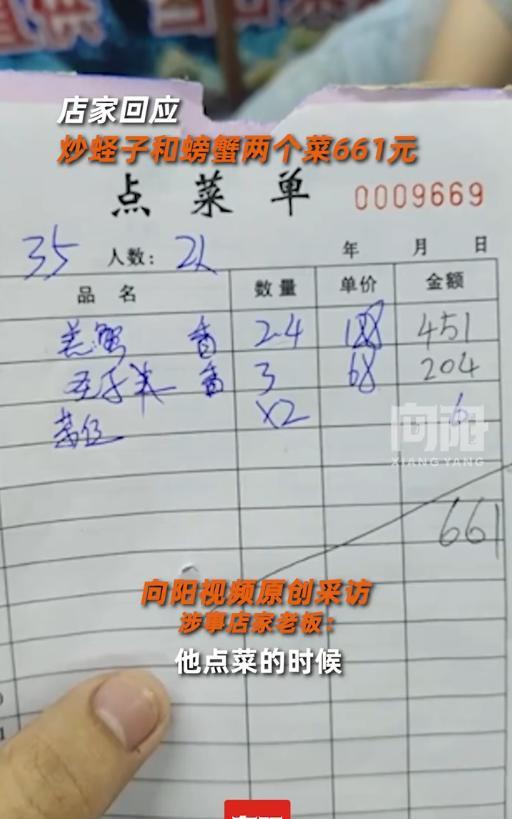 店家回应
炒蛏子和螃蟹两个菜661元
点菜单 0009669
35 人数: 2人 年 月 日
品名 数量 单价 金额
羔蟹 香 2.4 188 451
香 3 68 204
茶位 x2 6
向阳
XIANG YANG
661
向阳视频原创采访
涉事店家老板:
他点菜的时候